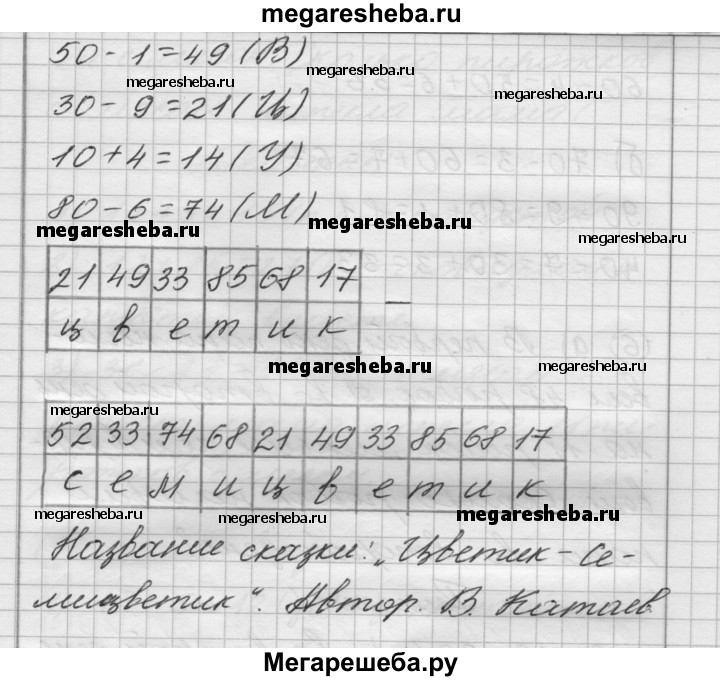 megaresheba.ru
50 - 1 = 49 (В)
megaresheba.ru
megaresheba.ru
megaresheba.ru
30 - 9 = 21 (Ц)
10 + 4 = 14 (У)
80 - 6 = 74 (М)
megaresheba.ru
megaresheba.ru
megaresheba.ru
21 49 33 85 68 17 —
ц в е т и к
megaresheba.ru
megaresheba.ru
megaresheba.ru
52 33 74 68 21 49 33 85 68 17
с е м и ц в е т и к
megaresheba.ru
megaresheba.ru
megaresheba.ru
Название сказки: „Цветик - се-
мицветик“. Автор. В. Катаев
Мегарешеба.ру